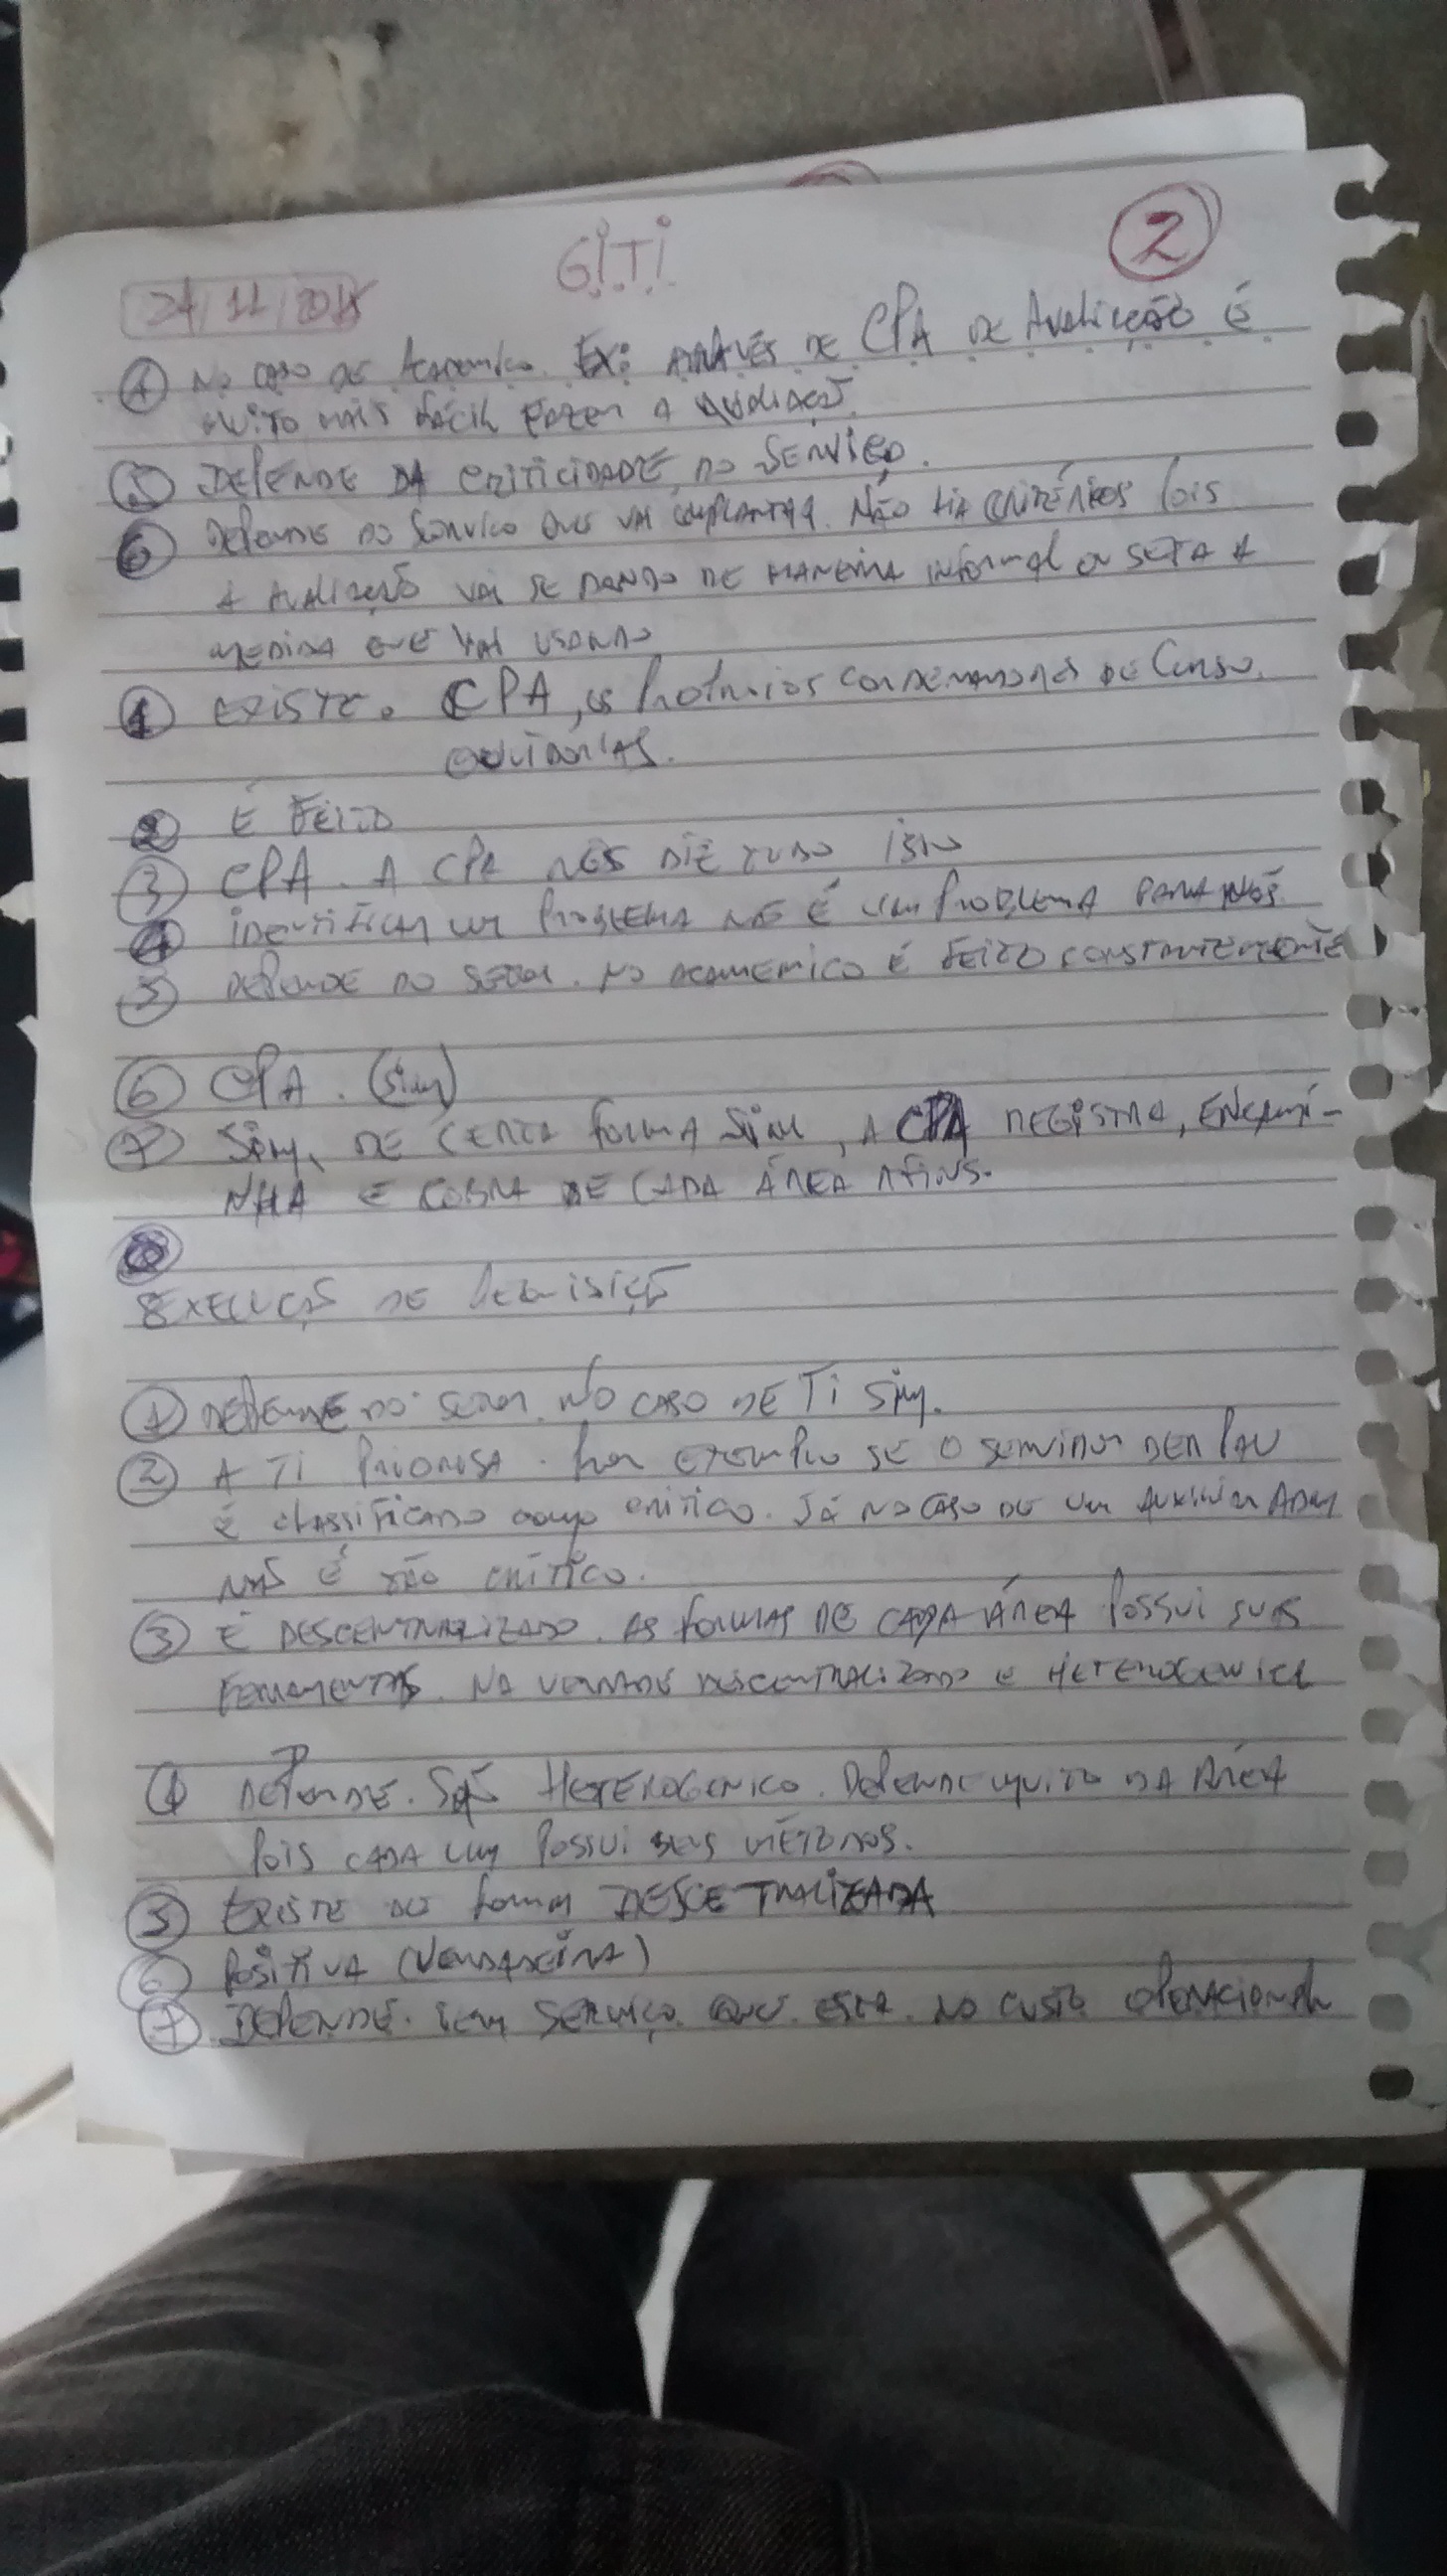 G.I.T.I.
2
24/11/2018
4 NO CASO DE ACADEMICO. EX: ATRAVÉS DE CPA DE AVALIAÇÃO É
MUITO MAIS FÁCIL FAZER A AVALIAÇÃO.
5 DEPENDE DA CRITICIDADE DO SERVIÇO.
6 DEPENDE DO SERVICO QUE VAI IMPLANTAR. NÃO HÁ CRITÉRIOS POIS
A AVALIAÇÃO VAI SE DANDO DE MANEIRA INFORMAL OU SEJA A
MEDIDA QUE VAI USANDO
1 EXISTE. CPA, OS PRÓPRIOS CORDENADORES DE CURSO.
OUVIDORIAS.
2 É FEITO
3 CPA. A CPA NOS DIZ TUDO ISTO
4 IDENTIFICAR UM PROBLEMA NÃO É UM PROBLEMA PARA NÓS.
5 DEPENDE DO SETOR. NO ACADEMICO É FEITO CONSTANTEMENTE
6 CPA. (SIM)
7 SIM, DE CERTA FORMA SIM, A CPA REGISTRA, ENCAMI-
NHA E COBRA DE CADA ÁREA AFINS.
8 EXECUÇÃO DE REQUISIÇÃO
1 DEPENDE DO SETOR. NO CASO DE TI SIM.
2 A TI PRIORISA. POR EXEMPLO SE O SERVIDOR DER PAU
É CLASSIFICADO COMO CRITICO. JÁ NO CASO DE UM AUXILIAR ADM
NÃO É TÃO CRÍTICO.
3 É DESCENTRALIZADO. AS FORMAS DE CADA ÁREA POSSUI SUAS
FERRAMENTAS. NA VERDADE DESCENTRALIZADO E
4 DEPENDE. SÃO HETEROGENICO. DEPENDE MUITO DA ÁREA
POIS CADA UM POSSUI SEUS MÉTODOS.
5 EXISTE DE FORMA DESCETRALIZADA
6 POSITIVA (VERDADEIRA)
7 DEPENDE. TEM SERVIÇO QUE ESTA NO CUSTO OPERACIONAL